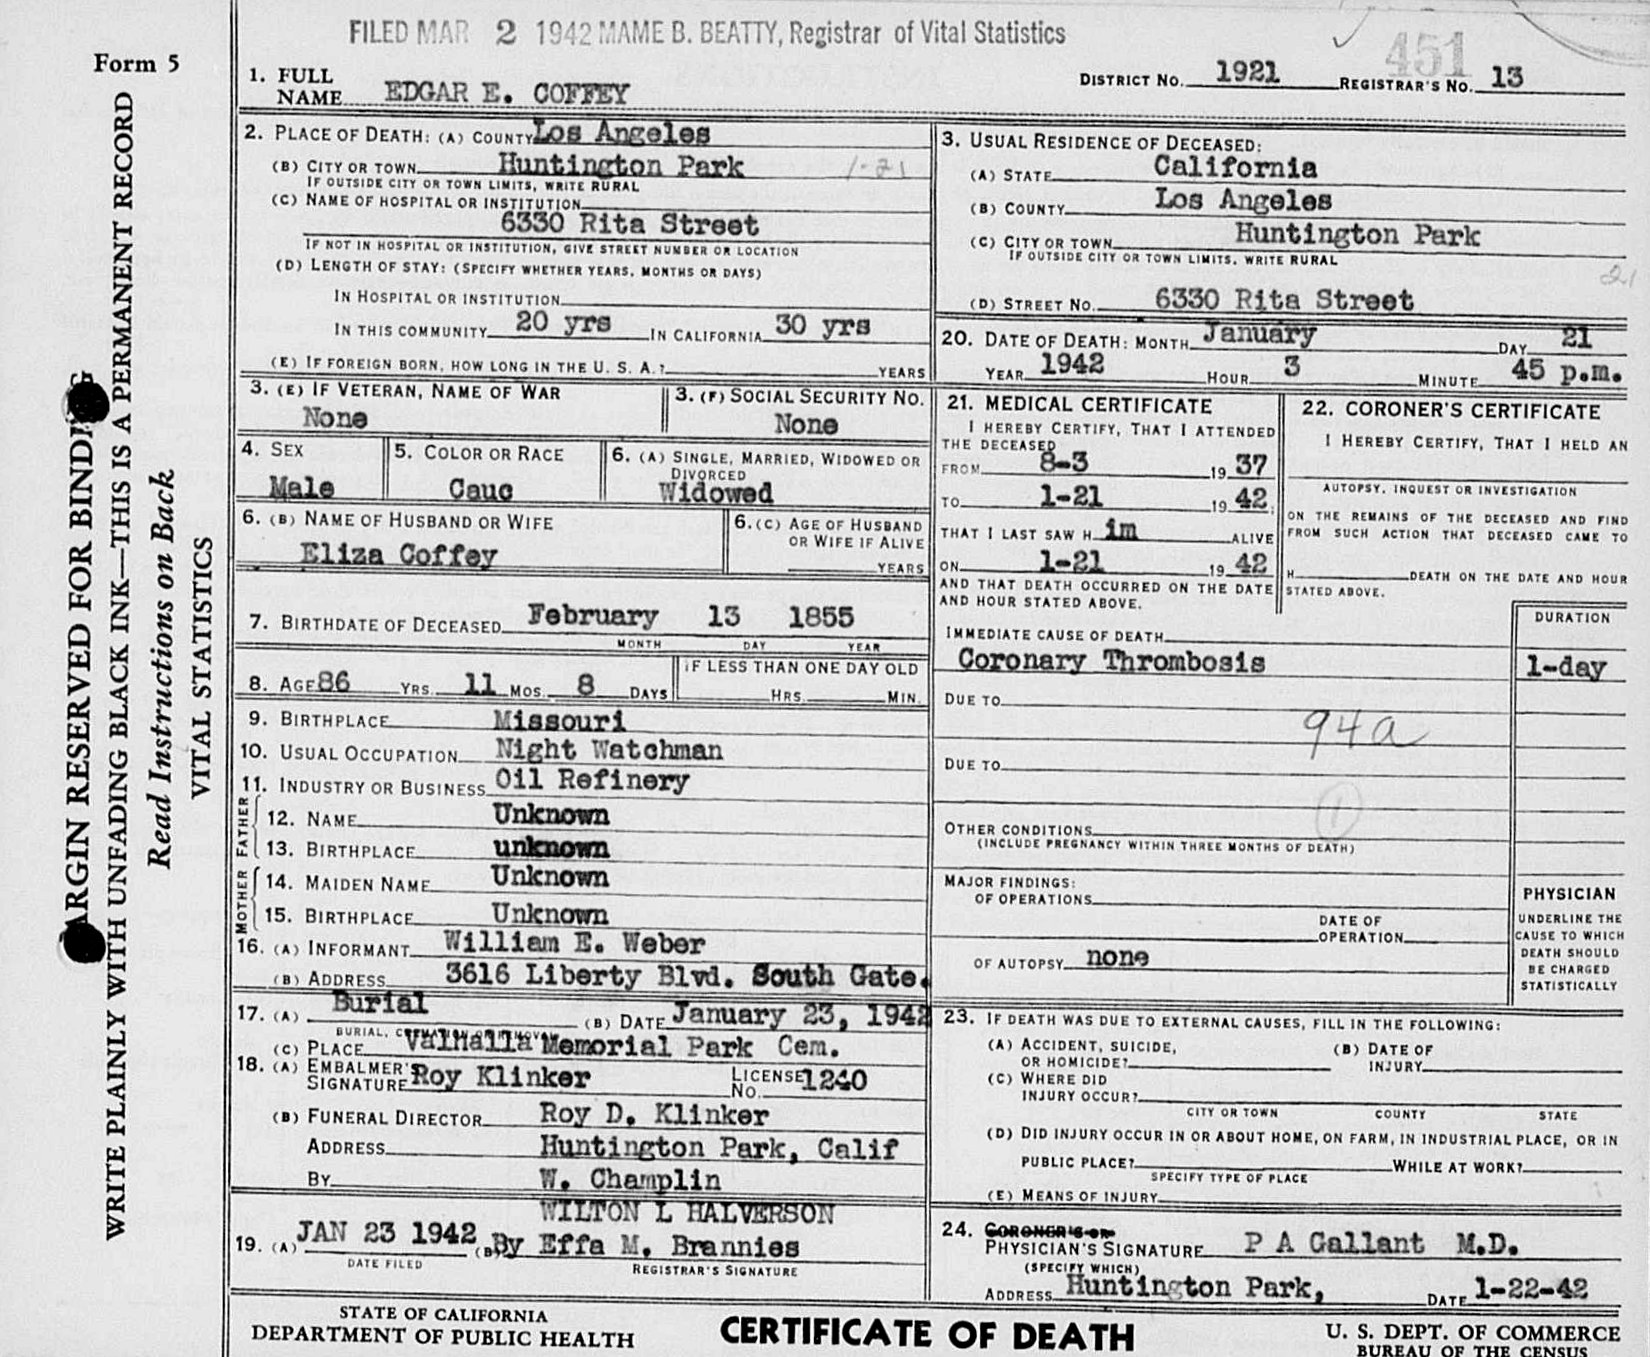 FILED MAR 2 1942 MAME B. BEATTY, Registrar of Vital Statistics
451
Form 5
1. FULL NAME EDGAR E. COFFEY
DISTRICT NO. 1921 REGISTRAR'S NO. 13
MARGIN RESERVED FOR BINDING
WRITE PLAINLY WITH UNFADING BLACK INK—THIS IS A PERMANENT RECORD
Read Instructions on Back
VITAL STATISTICS
2. PLACE OF DEATH: (A) COUNTY Los Angeles
(B) CITY OR TOWN Huntington Park 1-21
IF OUTSIDE CITY OR TOWN LIMITS, WRITE RURAL
(C) NAME OF HOSPITAL OR INSTITUTION
6330 Rita Street
IF NOT IN HOSPITAL OR INSTITUTION, GIVE STREET NUMBER OR LOCATION
(D) LENGTH OF STAY: (SPECIFY WHETHER YEARS, MONTHS OR DAYS)
IN HOSPITAL OR INSTITUTION
IN THIS COMMUNITY 20 yrs IN CALIFORNIA 30 yrs
(E) IF FOREIGN BORN, HOW LONG IN THE U. S. A.? YEARS
3. USUAL RESIDENCE OF DECEASED:
(A) STATE California
(B) COUNTY Los Angeles
(C) CITY OR TOWN Huntington Park
IF OUTSIDE CITY OR TOWN LIMITS, WRITE RURAL
21
(D) STREET NO. 6330 Rita Street
20. DATE OF DEATH: MONTH January DAY 21
YEAR 1942 HOUR 3 MINUTE 45 p.m.
3. (E) IF VETERAN, NAME OF WAR
None
3. (F) SOCIAL SECURITY NO.
None
4. SEX
Male
5. COLOR OR RACE
Cauc
6. (A) SINGLE, MARRIED, WIDOWED OR DIVORCED
Widowed
6. (B) NAME OF HUSBAND OR WIFE
Eliza Coffey
6. (C) AGE OF HUSBAND OR WIFE IF ALIVE
YEARS
7. BIRTHDATE OF DECEASED February 13 1855
MONTH DAY YEAR
8. AGE 86 YRS. 11 MOS. 8 DAYS
IF LESS THAN ONE DAY OLD
HRS. MIN.
9. BIRTHPLACE Missouri
10. USUAL OCCUPATION Night Watchman
11. INDUSTRY OR BUSINESS Oil Refinery
FATHER
12. NAME Unknown
13. BIRTHPLACE unknown
MOTHER
14. MAIDEN NAME Unknown
15. BIRTHPLACE Unknown
16. (A) INFORMANT William E. Weber
(B) ADDRESS 3616 Liberty Blvd. South Gate.
17. (A) Burial (B) DATE January 23, 1942
BURIAL, CREMATION OR REMOVAL
(C) PLACE Valhalla Memorial Park Cem.
18. (A) EMBALMER'S SIGNATURE Roy Klinker LICENSE NO. 1240
(B) FUNERAL DIRECTOR Roy D. Klinker
ADDRESS Huntington Park, Calif
BY W. Champlin
WILTON L HALVERSON
19. (A) JAN 23 1942 (B) By Effa M. Brannies
DATE FILED REGISTRAR'S SIGNATURE
21. MEDICAL CERTIFICATE
I HEREBY CERTIFY, THAT I ATTENDED
THE DECEASED
FROM 8-3 19 37
TO 1-21 19 42.
THAT I LAST SAW H im ALIVE
ON 1-21 19 42
AND THAT DEATH OCCURRED ON THE DATE
AND HOUR STATED ABOVE.
22. CORONER'S CERTIFICATE
I HEREBY CERTIFY, THAT I HELD AN
AUTOPSY, INQUEST OR INVESTIGATION
ON THE REMAINS OF THE DECEASED AND FIND
FROM SUCH ACTION THAT DECEASED CAME TO
H DEATH ON THE DATE AND HOUR
STATED ABOVE.
DURATION
IMMEDIATE CAUSE OF DEATH
Coronary Thrombosis 1-day
DUE TO
94a
DUE TO
1
OTHER CONDITIONS
(INCLUDE PREGNANCY WITHIN THREE MONTHS OF DEATH)
MAJOR FINDINGS:
OF OPERATIONS
DATE OF
OPERATION
OF AUTOPSY none
PHYSICIAN
UNDERLINE THE
CAUSE TO WHICH
DEATH SHOULD
BE CHARGED
STATISTICALLY
23. IF DEATH WAS DUE TO EXTERNAL CAUSES, FILL IN THE FOLLOWING:
(A) ACCIDENT, SUICIDE, OR HOMICIDE?
(B) DATE OF INJURY
(C) WHERE DID INJURY OCCUR?
CITY OR TOWN COUNTY STATE
(D) DID INJURY OCCUR IN OR ABOUT HOME, ON FARM, IN INDUSTRIAL PLACE, OR IN
PUBLIC PLACE? WHILE AT WORK?
SPECIFY TYPE OF PLACE
(E) MEANS OF INJURY
24. CORONER'S OR
PHYSICIAN'S SIGNATURE P A Gallant M.D.
(SPECIFY WHICH)
ADDRESS Huntington Park, DATE 1-22-42
STATE OF CALIFORNIA
DEPARTMENT OF PUBLIC HEALTH
CERTIFICATE OF DEATH
U. S. DEPT. OF COMMERCE
BUREAU OF THE CENSUS